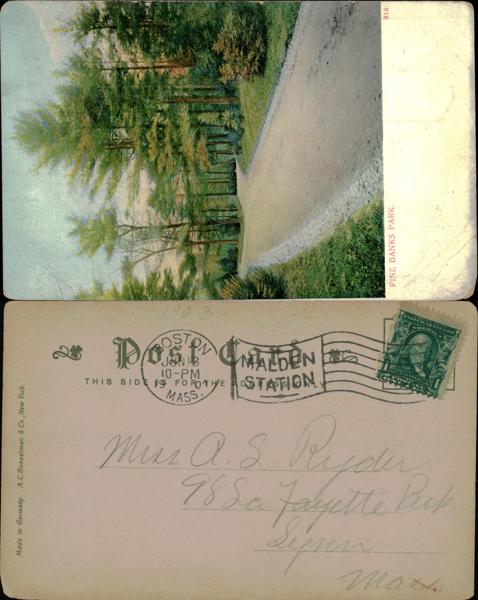 814
PINE BANKS PARK.
1903
25
Post Card
THIS SIDE IS FOR THE ADDRESS ONLY
BOSTON
JUN 3
10-PM
MASS.
MALDEN
STATION
Made in Germany. A.C. Bosselman & Co., New York.
Miss A. S. Ryder
98 La Fayette Park
Lynn
Mass.